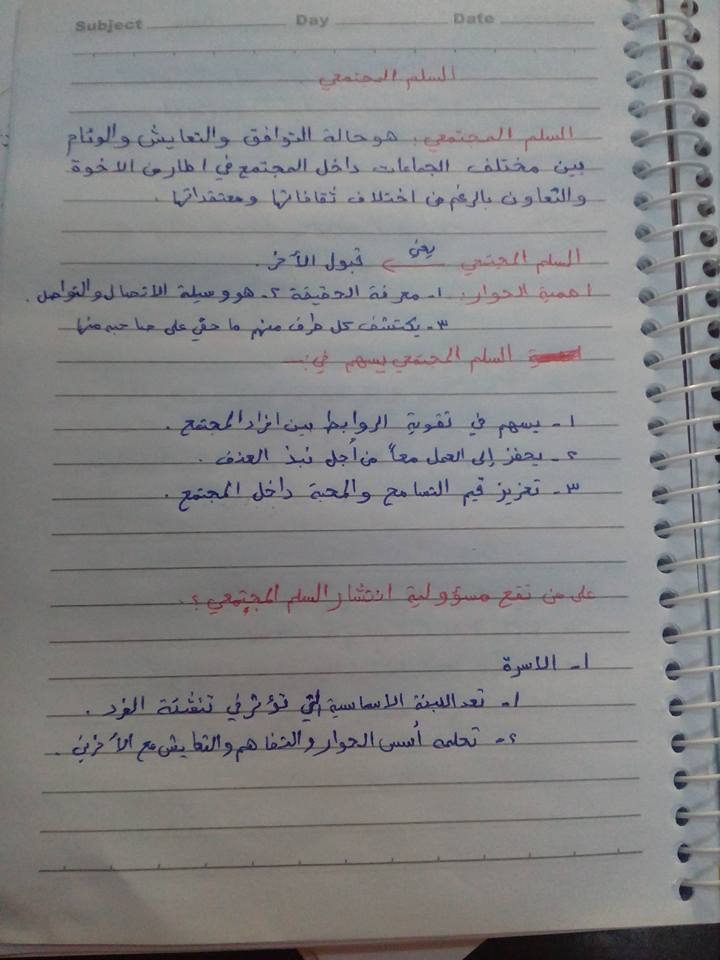 Subject Day Date
السلم المجتمعي
السلم المجتمعي: هو حالة التوافق والتعايش والوئام
بين مختلف الجماعات داخل المجتمع في اطار من الاخوة
والتعاون بالرغم من اختلاف ثقافاتها ومعتقداتها .
السلم المجتمعي يعني قبول الآخر .
اهمية الحوار: ١- معرفة الحقيقة ٢- هو وسيلة الاتصال والتواصل .
٣- يكتشف كل طرف منهم ما خفي على صاحبه منها
السلم المجتمعي يسهم في :-
١- يسهم في تقوية الروابط بين افراد المجتمع .
٢- يحفز إلى العمل معاً من أجل نبذ العنف .
٣- تعزيز قيم التسامح والمحبة داخل المجتمع .
على من تقع مسؤولية انتشار السلم المجتمعي ؟ .
١- الاسرة
١- تعد اللبنة الاساسية التي تؤثر في تنشئة الفرد .
٢- تعلمه أسس الحوار والتفاهم والتعايش مع الآخرين .